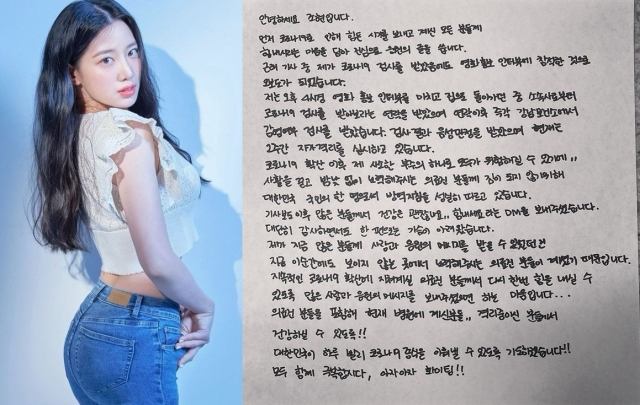 안녕하세요 조현입니다.
먼저 코로나19로 인해 힘든 시기를 보내고 계신 모든 분들께
힘내시라는 마음을 담아 진심으로 응원의 글을 씁니다.
근래 기사 중 제가 코로나19 검사를 받았음에도 영화홍보 인터뷰에 참석한 것으로
보도가 되었습니다.
저는 오후 4시경 영화 홍보 인터뷰를 마치고 집으로 돌아가던 중 소속사로부터
코로나19 검사를 받아보라는 연락을 받았으며 연락이후 즉각 강남보건소에서
감염여부 검사를 받았습니다. 검사결과 음성판정을 받았으며 현재는
2주간 자가격리를 실시하고 있습니다.
코로나19 확산 이후 제 생각한 부주의 하나로 모두가 위험해질 수 있기에,,
사활을 걸고 밤낮 없이 노력해주시는 의료진 분들께 짐이 되지 않기위해
대한민국 국민의 한 명으로서 방역지침을 성실히 따르고 있습니다.
기사보도이후 많은 분들께서 건강은 괜찮은지,, 힘내세요 라는 DM을 보내주셨습니다.
대단히 감사하면서도 한 편으로는 가슴이 아려 왔습니다.
제가 지금 많은 분들께 사랑과 응원의 메시지를 받을 수 있었던건
지금 이순간에도 보이지 않는 곳에서 노력해주시는 의료진 분들이 계셨기 때문입니다.
지속적인 코로나19 확산에 지쳐계실 의료진 분들께서 다시 한번 힘을 내실 수
있도록 많은 사랑과 응원의 메시지를 보내주셨으면 하는 마음입니다...
의료진 분들을 포함해 현재 병원에 계신분들,, 격리중이신 분들께서
건강해질 수 있도록!!
대한민국이 하루 빨리 코로나19 종식을 이뤄낼 수 있도록 기도하겠습니다!!
모두 함께 극복합시다, 아자아자 화이팅!!